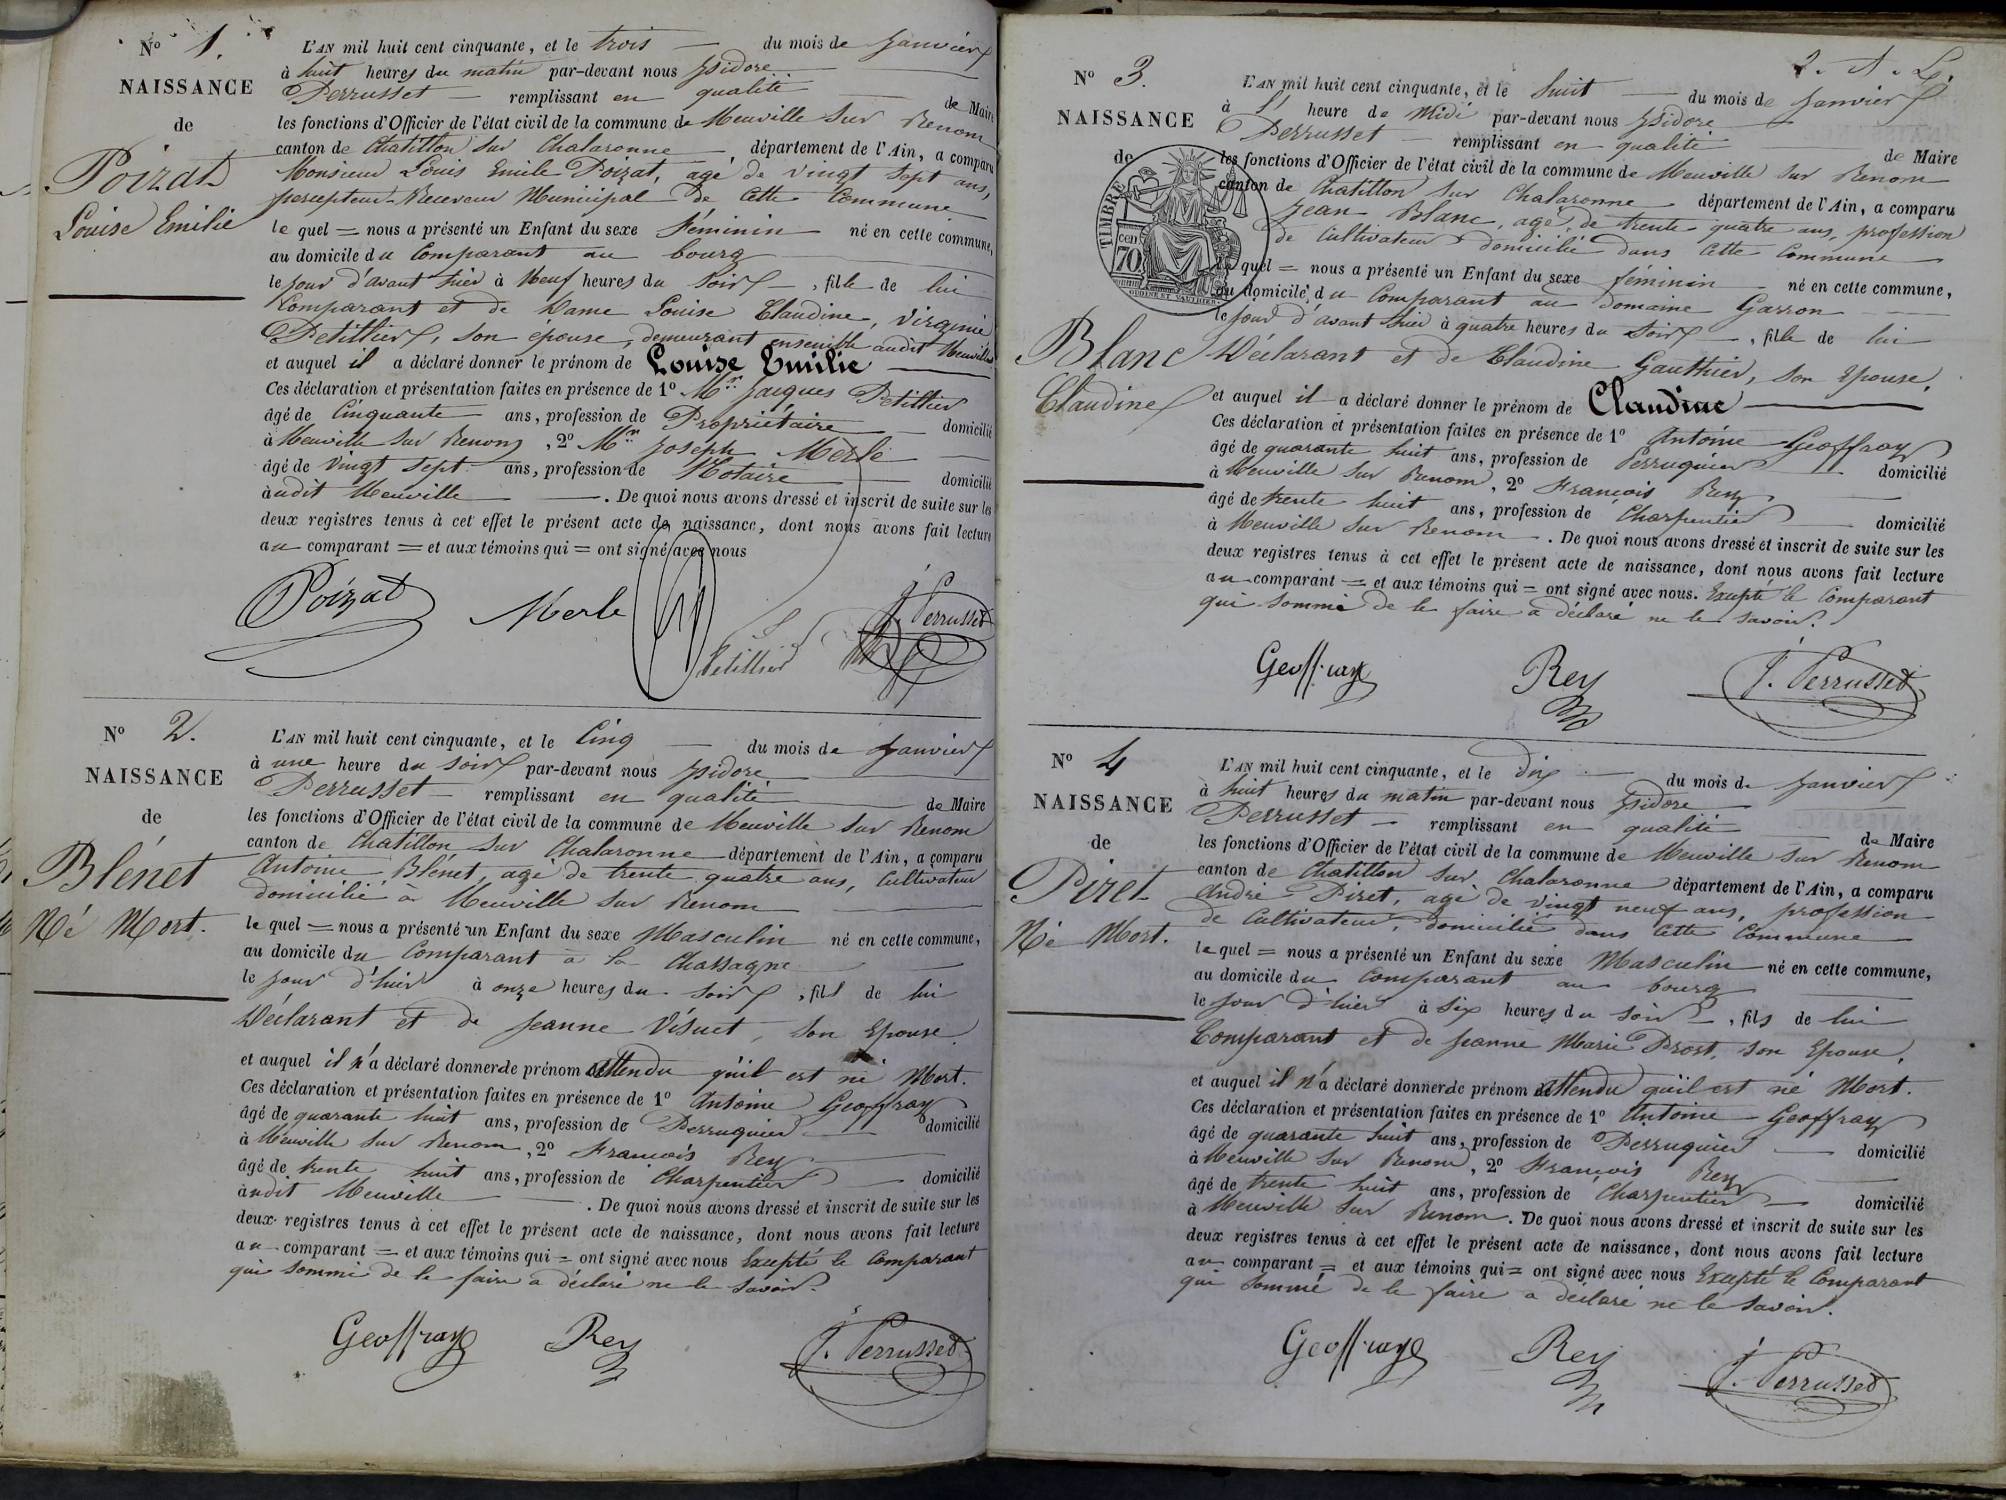 N° 1.
NAISSANCE
de
Poizat
Louise Emilie
L'AN mil huit cent cinquante, et le trois du mois de Janvier
à huit heures du matin par-devant nous Isidore
Perrusset remplissant en qualité de Maire
les fonctions d'Officier de l'état civil de la commune de Neuville sur Renom
canton de Chatillon sur Chalaronne, département de l'Ain, a comparu
Monsieur Louis Emile Poizat, agé de vingt sept ans,
percepteur-Receveur Municipal de cette Commune
le quel = nous a présenté un Enfant du sexe féminin né en cette commune,
au domicile du Comparant au bourg
le jour d'avant hier à Neuf heures du Soir, fille de lui
Comparant et de Dame Louise Claudine, Virginie
Petillier, son epouse, demeurant ensemble audit Neuville
et auquel il a déclaré donner le prénom de Louise Emilie
Ces déclaration et présentation faites en présence de 1° Mr Jacques Petillier
âgé de Cinquante ans, profession de Propriétaire domicilié
à Neuville sur Renom, 2° Mr Joseph Merle
âgé de vingt sept ans, profession de Notaire domicilié
àudit Neuville. De quoi nous avons dressé et inscrit de suite sur les
deux registres tenus à cet effet le présent acte de naissance, dont nous avons fait lecture
au comparant = et aux témoins qui = ont signé avec nous
Poizat Merle Petillier J. Perrusset
N° 2.
NAISSANCE
de
Blénet
Né Mort.
L'AN mil huit cent cinquante, et le Cinq du mois de Janvier
à une heure du soir par-devant nous Isidore
Perrusset remplissant en qualité de Maire
les fonctions d'Officier de l'état civil de la commune de Neuville sur Renom
canton de Chatillon sur Chalaronne département de l'Ain, a comparu
Antoine Blénet, agé de trente quatre ans, Cultivateur
domicilié à Neuville sur Renom
le quel = nous a présenté un Enfant du sexe Masculin né en cette commune,
au domicile du Comparant à la Chassagne
le jour d'hier à onze heures du soir, fils de lui
Déclarant et de Jeanne Visuet, son Epouse.
et auquel il n'a déclaré donner de prénom attendu qu'il est né Mort.
Ces déclaration et présentation faites en présence de 1° Antoine Geoffray
âgé de quarante huit ans, profession de Perruquier domicilié
à Neuville sur Renom, 2° François Rey
âgé de trente huit ans, profession de Charpentier domicilié
àudit Neuville. De quoi nous avons dressé et inscrit de suite sur les
deux registres tenus à cet effet le présent acte de naissance, dont nous avons fait lecture
au comparant = et aux témoins qui = ont signé avec nous Excepté le Comparant
qui sommé de le faire a déclaré ne le savoir.
Geoffray Rey J. Perrusset
N° 3.
NAISSANCE
de
TIMBRE
cen
70
Blanc
Claudine
L'AN mil huit cent cinquante, et le huit du mois de Janvier
à l' heure de Midi par-devant nous Isidore
Perrusset remplissant en qualité de Maire
les fonctions d'Officier de l'état civil de la commune de Neuville sur Renom
canton de Chatillon sur Chalaronne département de l'Ain, a comparu
Jean Blanc, agé de trente-quatre ans, profession
de Cultivateur domicilié dans cette Commune
le quel = nous a présenté un Enfant du sexe féminin né en cette commune,
au domicile du Comparant au domaine Garron
le jour d'avant hier à quatre heures du Soir, fille de lui
Déclarant et de Claudine Gauthier, son Epouse.
et auquel il a déclaré donner le prénom de Claudine
Ces déclaration et présentation faites en présence de 1° Antoine Geoffray
âgé de quarante huit ans, profession de Perruquier domicilié
à Neuville sur Renom, 2° François Rey
âgé de trente huit ans, profession de Charpentier domicilié
à Neuville sur Renom. De quoi nous avons dressé et inscrit de suite sur les
deux registres tenus à cet effet le présent acte de naissance, dont nous avons fait lecture
au comparant = et aux témoins qui = ont signé avec nous. Excepté le Comparant
qui sommé de le faire a déclaré ne le savoir.
Geoffray Rey J. Perrusset
N° 4
NAISSANCE
de
Piret
Né Mort.
L'AN mil huit cent cinquante, et le Dix du mois de Janvier
à huit heures du matin par-devant nous Isidore
Perrusset remplissant en qualité de Maire
les fonctions d'Officier de l'état civil de la commune de Neuville sur Renom
canton de Chatillon sur Chalaronne département de l'Ain, a comparu
André Piret, agé de vingt neuf ans, profession
de Cultivateur, domicilié dans cette Commune
le quel = nous a présenté un Enfant du sexe Masculin né en cette commune,
au domicile du Comparant au bourg
le jour d'hier à six heures du soir, fils de lui
Comparant et de Jeanne Marie Prost, son Epouse.
et auquel il n'a déclaré donner de prénom attendu qu'il est né Mort.
Ces déclaration et présentation faites en présence de 1° Antoine Geoffray
âgé de quarante huit ans, profession de Perruquier domicilié
à Neuville sur Renom, 2° François Rey
âgé de trente huit ans, profession de Charpentier domicilié
à Neuville sur Renom. De quoi nous avons dressé et inscrit de suite sur les
deux registres tenus à cet effet le présent acte de naissance, dont nous avons fait lecture
au comparant = et aux témoins qui = ont signé avec nous Excepté le Comparant
qui sommé de le faire a déclaré ne le savoir.
Geoffray Rey J. Perrusset